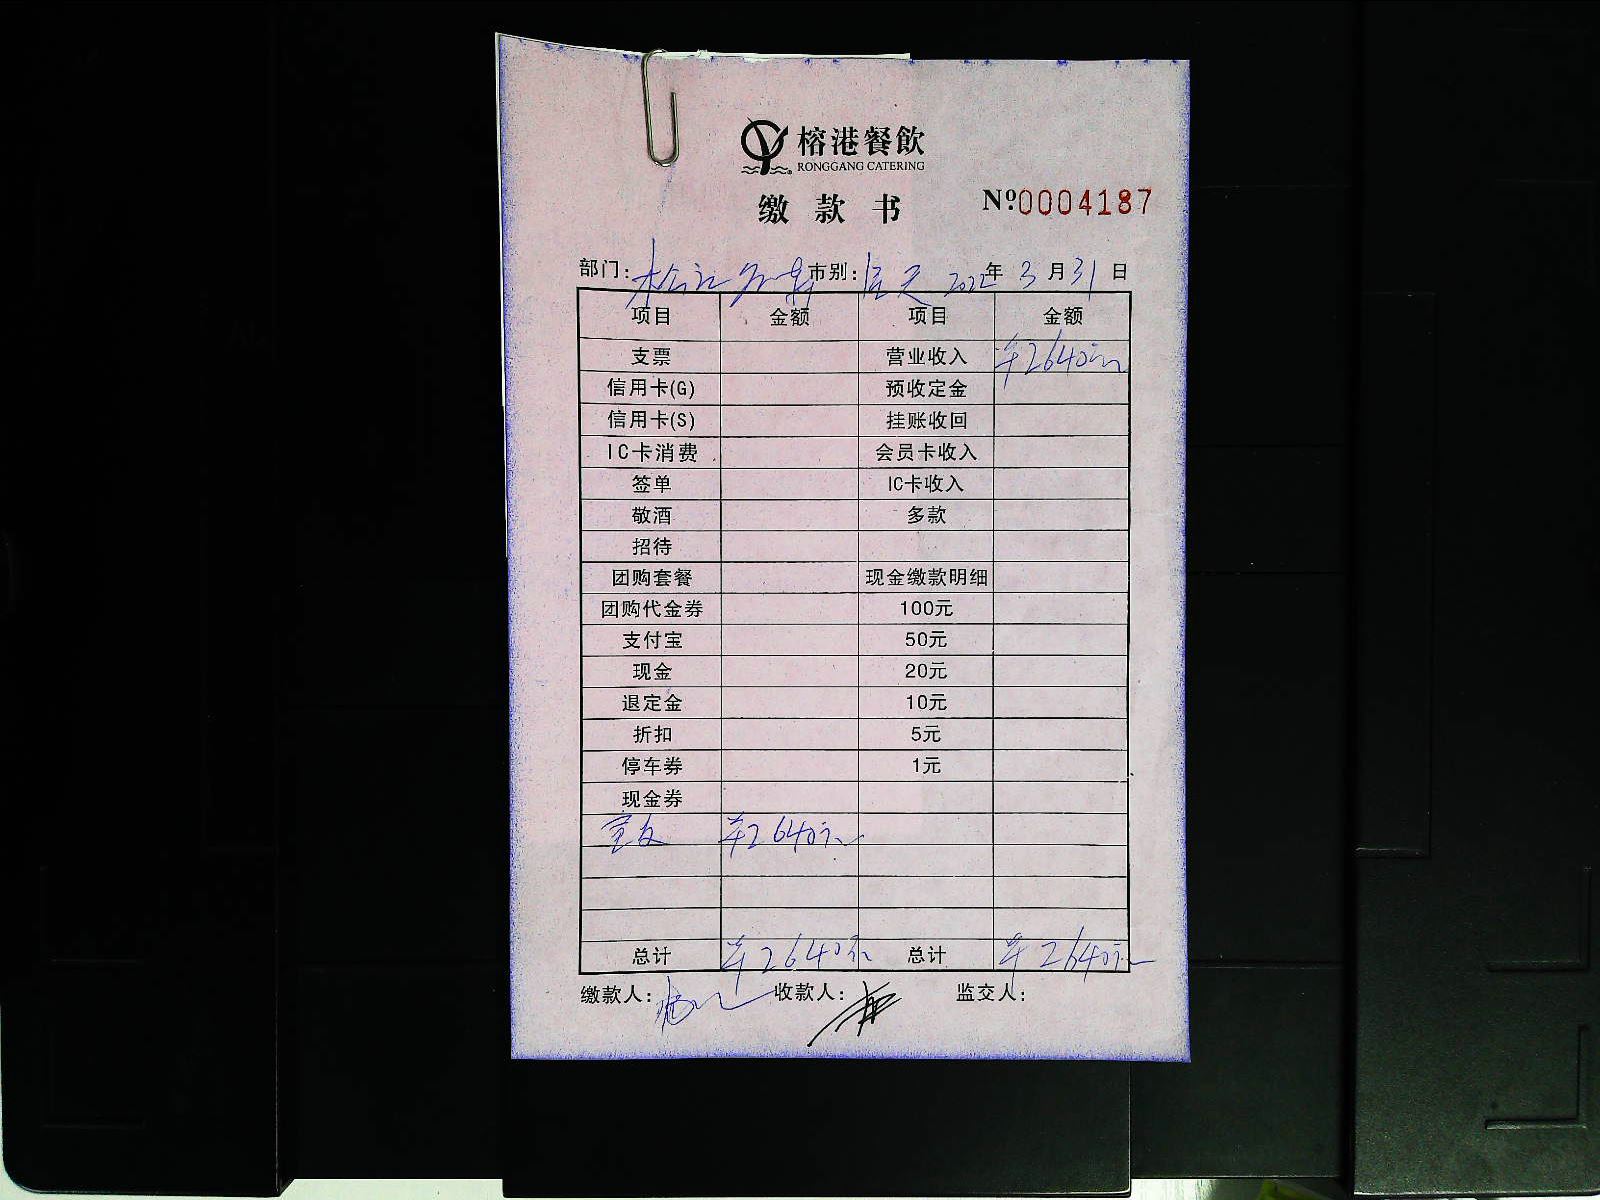 榕港餐飲
RONGGANG CATERING
缴款书 Nº0004187
部门: 市别: 2022年3月31日
项目 金额 项目 金额
支票 营业收入 ¥2640元
信用卡(G) 预收定金
信用卡(S) 挂账收回
IC卡消费 会员卡收入
签单 IC卡收入
敬酒 多款
招待
团购套餐 现金缴款明细
团购代金券 100元
支付宝 50元
现金 20元
退定金 10元
折扣 5元
停车券 1元
现金券
¥2640元
总计 ¥2640元 总计 ¥2640元
缴款人: 收款人: 监交人: